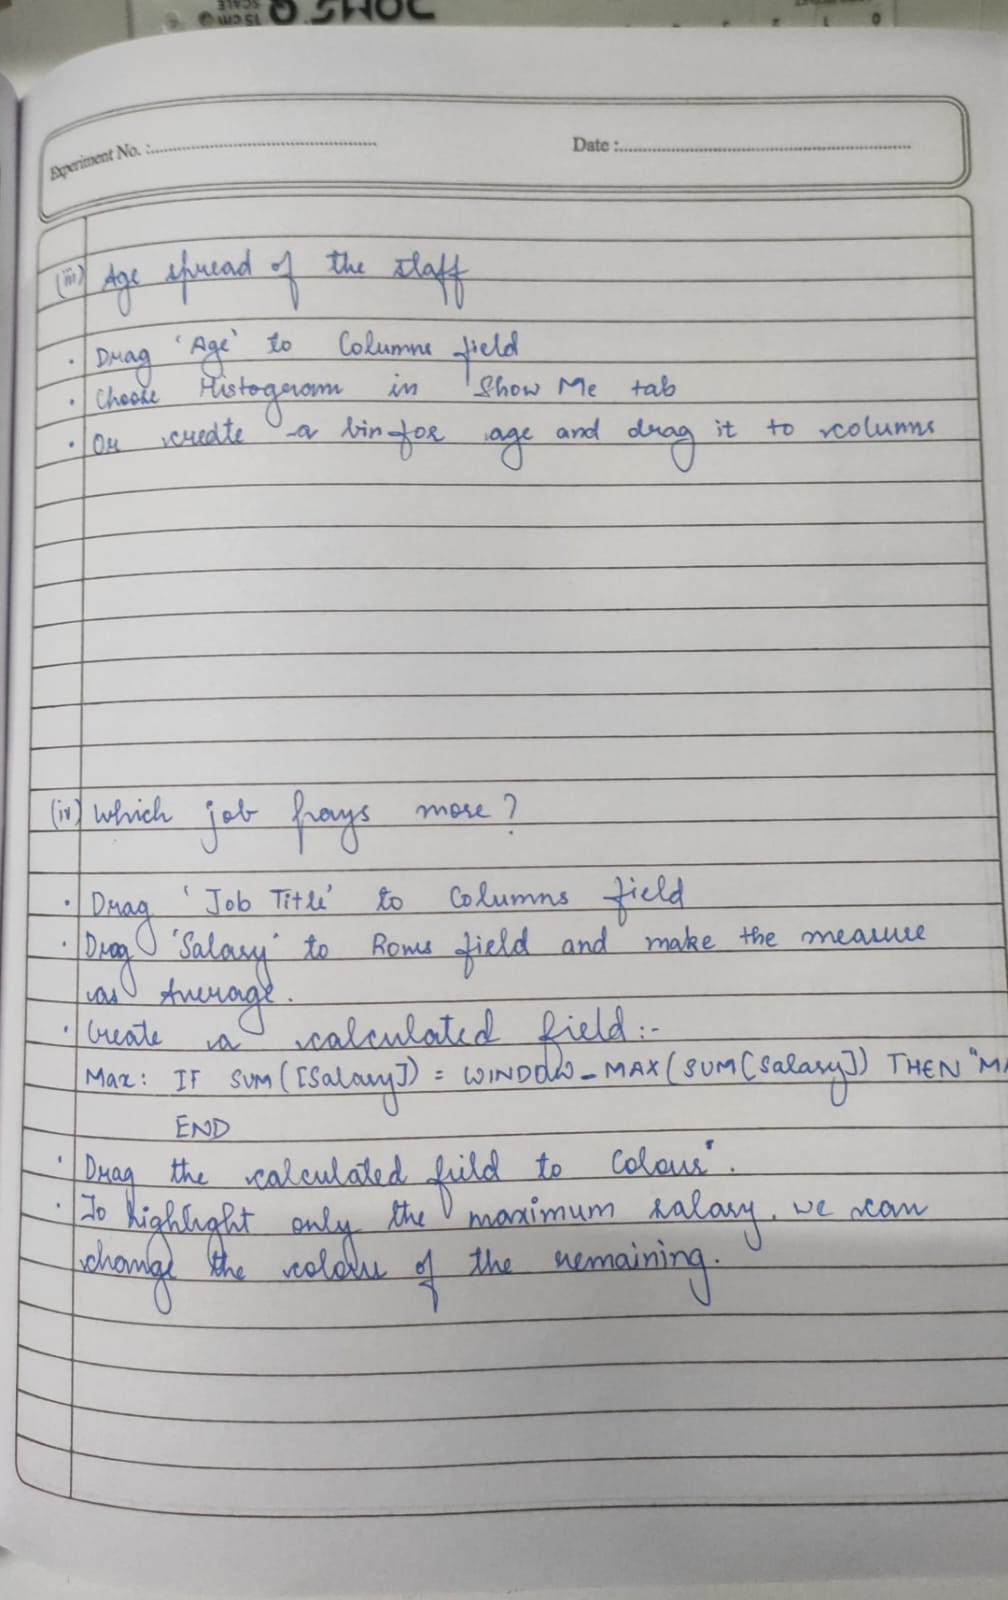 SCALE
15cm
30HS
0 1 2
Experiment No. :
Date :
(iii) Age spread of the staff
· Drag 'Age' to Columns field
· Choose Histogram in Show Me tab
· Or create a bin for age and drag it to columns
(iv) Which job pays more?
· Drag 'Job Title' to Columns field
· Drag 'Salary' to Rows field and make the measure
as Average.
· Create a calculated field:-
Max: IF SUM([Salary]) = WINDOW_MAX(SUM[Salary]) THEN "MA
END
· Drag the calculated field to Colour".
· To highlight only the maximum salary, we can
change the colour of the remaining.